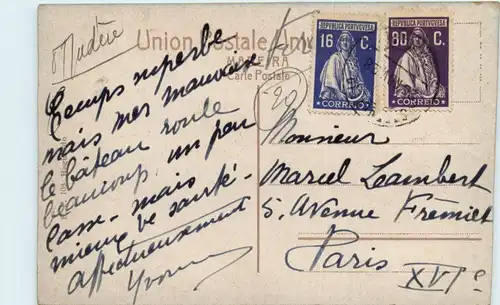 Madère
Union Postale Uni
MADEIRA
Carte Postale
REPUBLICA PORTUGUESA
16 C.
CORREIO
REPUBLICA PORTUGUESA
80 C.
CORREIO
20
Temps superbe
mais mer mauvaise
le bâteau roule
beaucoup un peu
lasse - mais
mieux de santé -
affectueusement
Yvonne
Monsieur
Marcel Lambert
5, Avenue Frémiet
Paris
XVIe